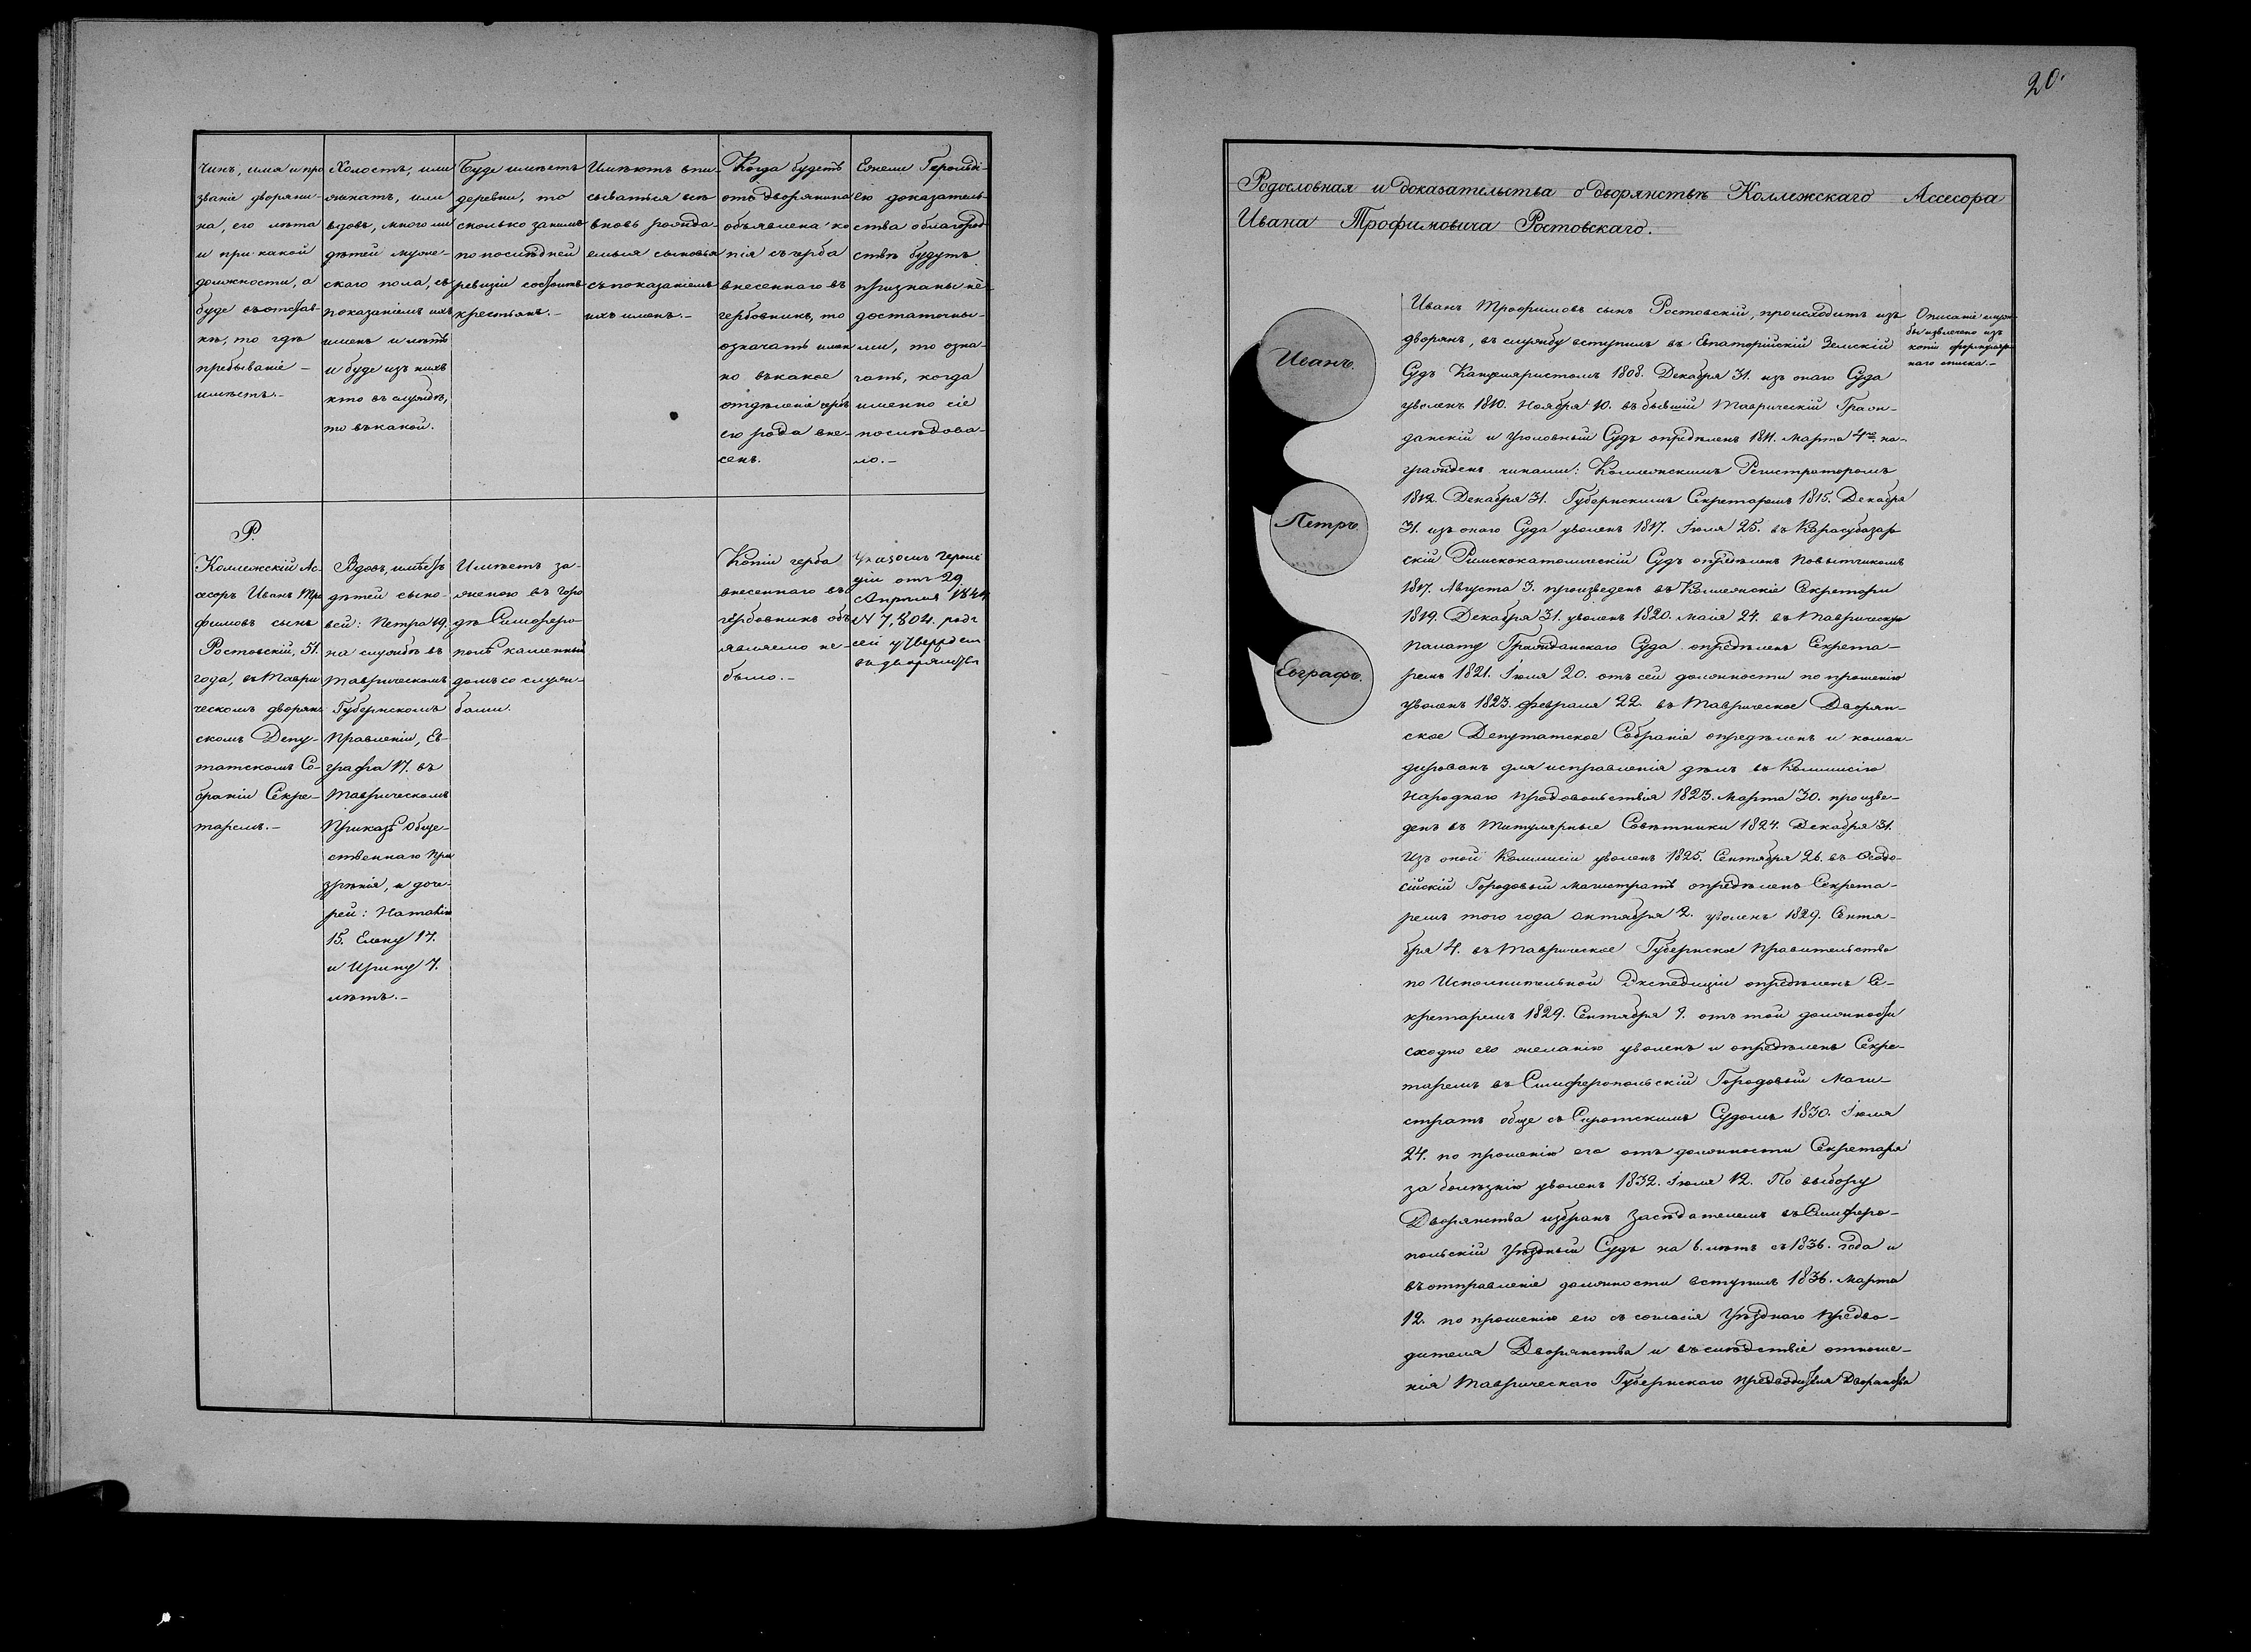 Чинъ, имя и про
званіе дворяни-
на, его лѣта
и при какой
должности, а
буде въ отстав-
кѣ, то гдѣ
пребываніе -
имѣетъ.-
Холостъ, или
женатъ, или
вдовъ, много ли
дѣтей муже-
скаго пола, съ
показаніемъ ихъ
именъ и лѣтъ
и буде изъ нихъ
кто въ службѣ,
то въ какой.
Буде имѣетъ
деревни, то
сколько за нимъ
по послѣдней
ревизіи состоитъ
крестьянъ.-
Имѣютъ впи-
сываться всѣ
вновь рожда-
емыя сыновья
съ показаніемъ
ихъ именъ.-
Когда будетъ
отъ дворянина
объявлена ко
пія съ герба
внесеннаго въ
гербовникъ, то
означать имен
но въ какое
отдѣленіе гербъ
его рода вне-
сенъ.
Ежели Герольді-
ею доказатель
ства о благород
ствѣ будутъ
признаны не-
достаточны-
ми, то озна-
чать, когда
именно сіе
послѣдова-
ло.-
Р.
Коллежскій Ас-
сесоръ Иванъ Тро
фимовъ сынъ
Ростовскій, 51.
года, въ Таври
ческомъ дворян
скомъ Депу-
татскомъ Со-
браніи Секре-
таремъ.-
Вдовъ, имѣетъ
дѣтей сыно-
вей: Петра 19.
на службѣ въ
Таврическомъ
Губернскомъ
Правленіи, Ев-
графа 17. въ
Таврическомъ
Приказѣ Обще-
ственнаго При
зрѣнія, и доче-
рей: Наталію
15. Елену 17.
и Ирину 7.
лѣтъ.-
Имѣетъ за-
женою въ горо
дѣ Симферо
полѣ каменный
домъ со служ-
бами.
Копіи герба
внесеннаго въ
гербовникъ объ
являемо не-
было.-
Указомъ Герольд
діи отъ 29
Апрѣля 1844
N 7,804. родъ
сей утвержден
въ дворянств
20.
Родословная и доказательства о дворянствѣ Коллежскаго Ассесора
Ивана Трофимовича Ростовскаго.
Иванъ.
Петръ.
Евграфъ.
Иванъ Трофимовъ сынъ Ростовскій, происходитъ изъ
дворянъ, въ службу вступилъ въ Евпаторійскій Земскій
Судъ Канцеляристомъ 1808. Декабря 31. изъ онаго Суда
уволенъ 1810. Ноября 10. въ бывшій Таврическій Граж-
данскій и Уголовный Судъ опредѣленъ 1811. Марта 4го на-
гражденъ чинами: Коллежскимъ Регистраторомъ
1812. Декабря 31. Губернскимъ Секретаремъ 1815. Декабря
31. изъ онаго Суда уволенъ 1817. Іюля 25. въ Карасубазар
скій Римскокатолическій Судъ опредѣленъ Повытчикомъ
1817. Августа 3. произведенъ въ Коллежскіе Секретари
1819. Декабря 31. уволенъ 1820. Маія 24. въ Таврическую
Палату Гражданскаго Суда опредѣленъ Секрета-
ремъ 1821. Іюля 20. отъ сей должности по прошенію
уволенъ 1823. Февраля 22. въ Таврическое Дворян-
ское Депутатское Собраніе опредѣленъ и коман-
дированъ для исправленія дѣлъ въ Коммисію
Народнаго Продовольствія 1823. Марта 30. произве-
денъ въ Титулярные Совѣтники 1824. Декабря 31.
Изъ оной Коммисіи уволенъ 1825. Сентября 26. въ Ѳеодо-
сійскій Городовый Магистратъ опредѣленъ Секрета-
ремъ того года Октября 2. уволенъ 1829. Сентя-
бря 4. въ Таврическое Губернское Правительство
по Исполнительной Экспедиціи опредѣленъ Се-
кретаремъ 1829. Сентября 9. отъ той должности
сходно его желанію уволенъ и опредѣленъ Секре-
таремъ въ Симферопольскій Городовый Маги-
стратъ обще съ Сиротскимъ Судомъ 1830. Іюля
24. по прошенію его отъ должности Секретаря
за болѣзнію уволенъ 1832. Іюля 12. По выбору
Дворянства избранъ Засѣдателемъ въ Симферо-
польскій Уѣздный Судъ на 6. лѣтъ съ 1836. года и
въ отправленіе должности вступилъ 1836. Марта
12. по прошенію его съ согласія Уѣзднаго Предво-
дителя Дворянства и въ слѣдствіе отноше-
нія Таврическаго Губернскаго Предводителя Дворянства
Описаніе служ-
бы извлечено изъ
копіи формуляр-
наго списка.-